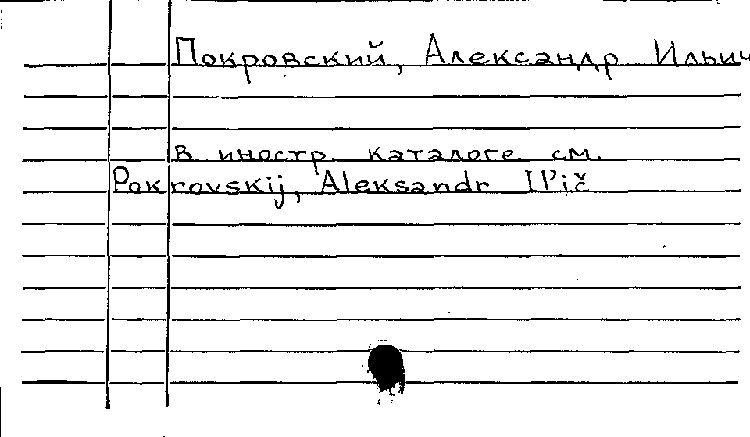 Покровский, Александр Ильич
в иностр. каталоге см.
Pokrovskij, Aleksandr Il'ič